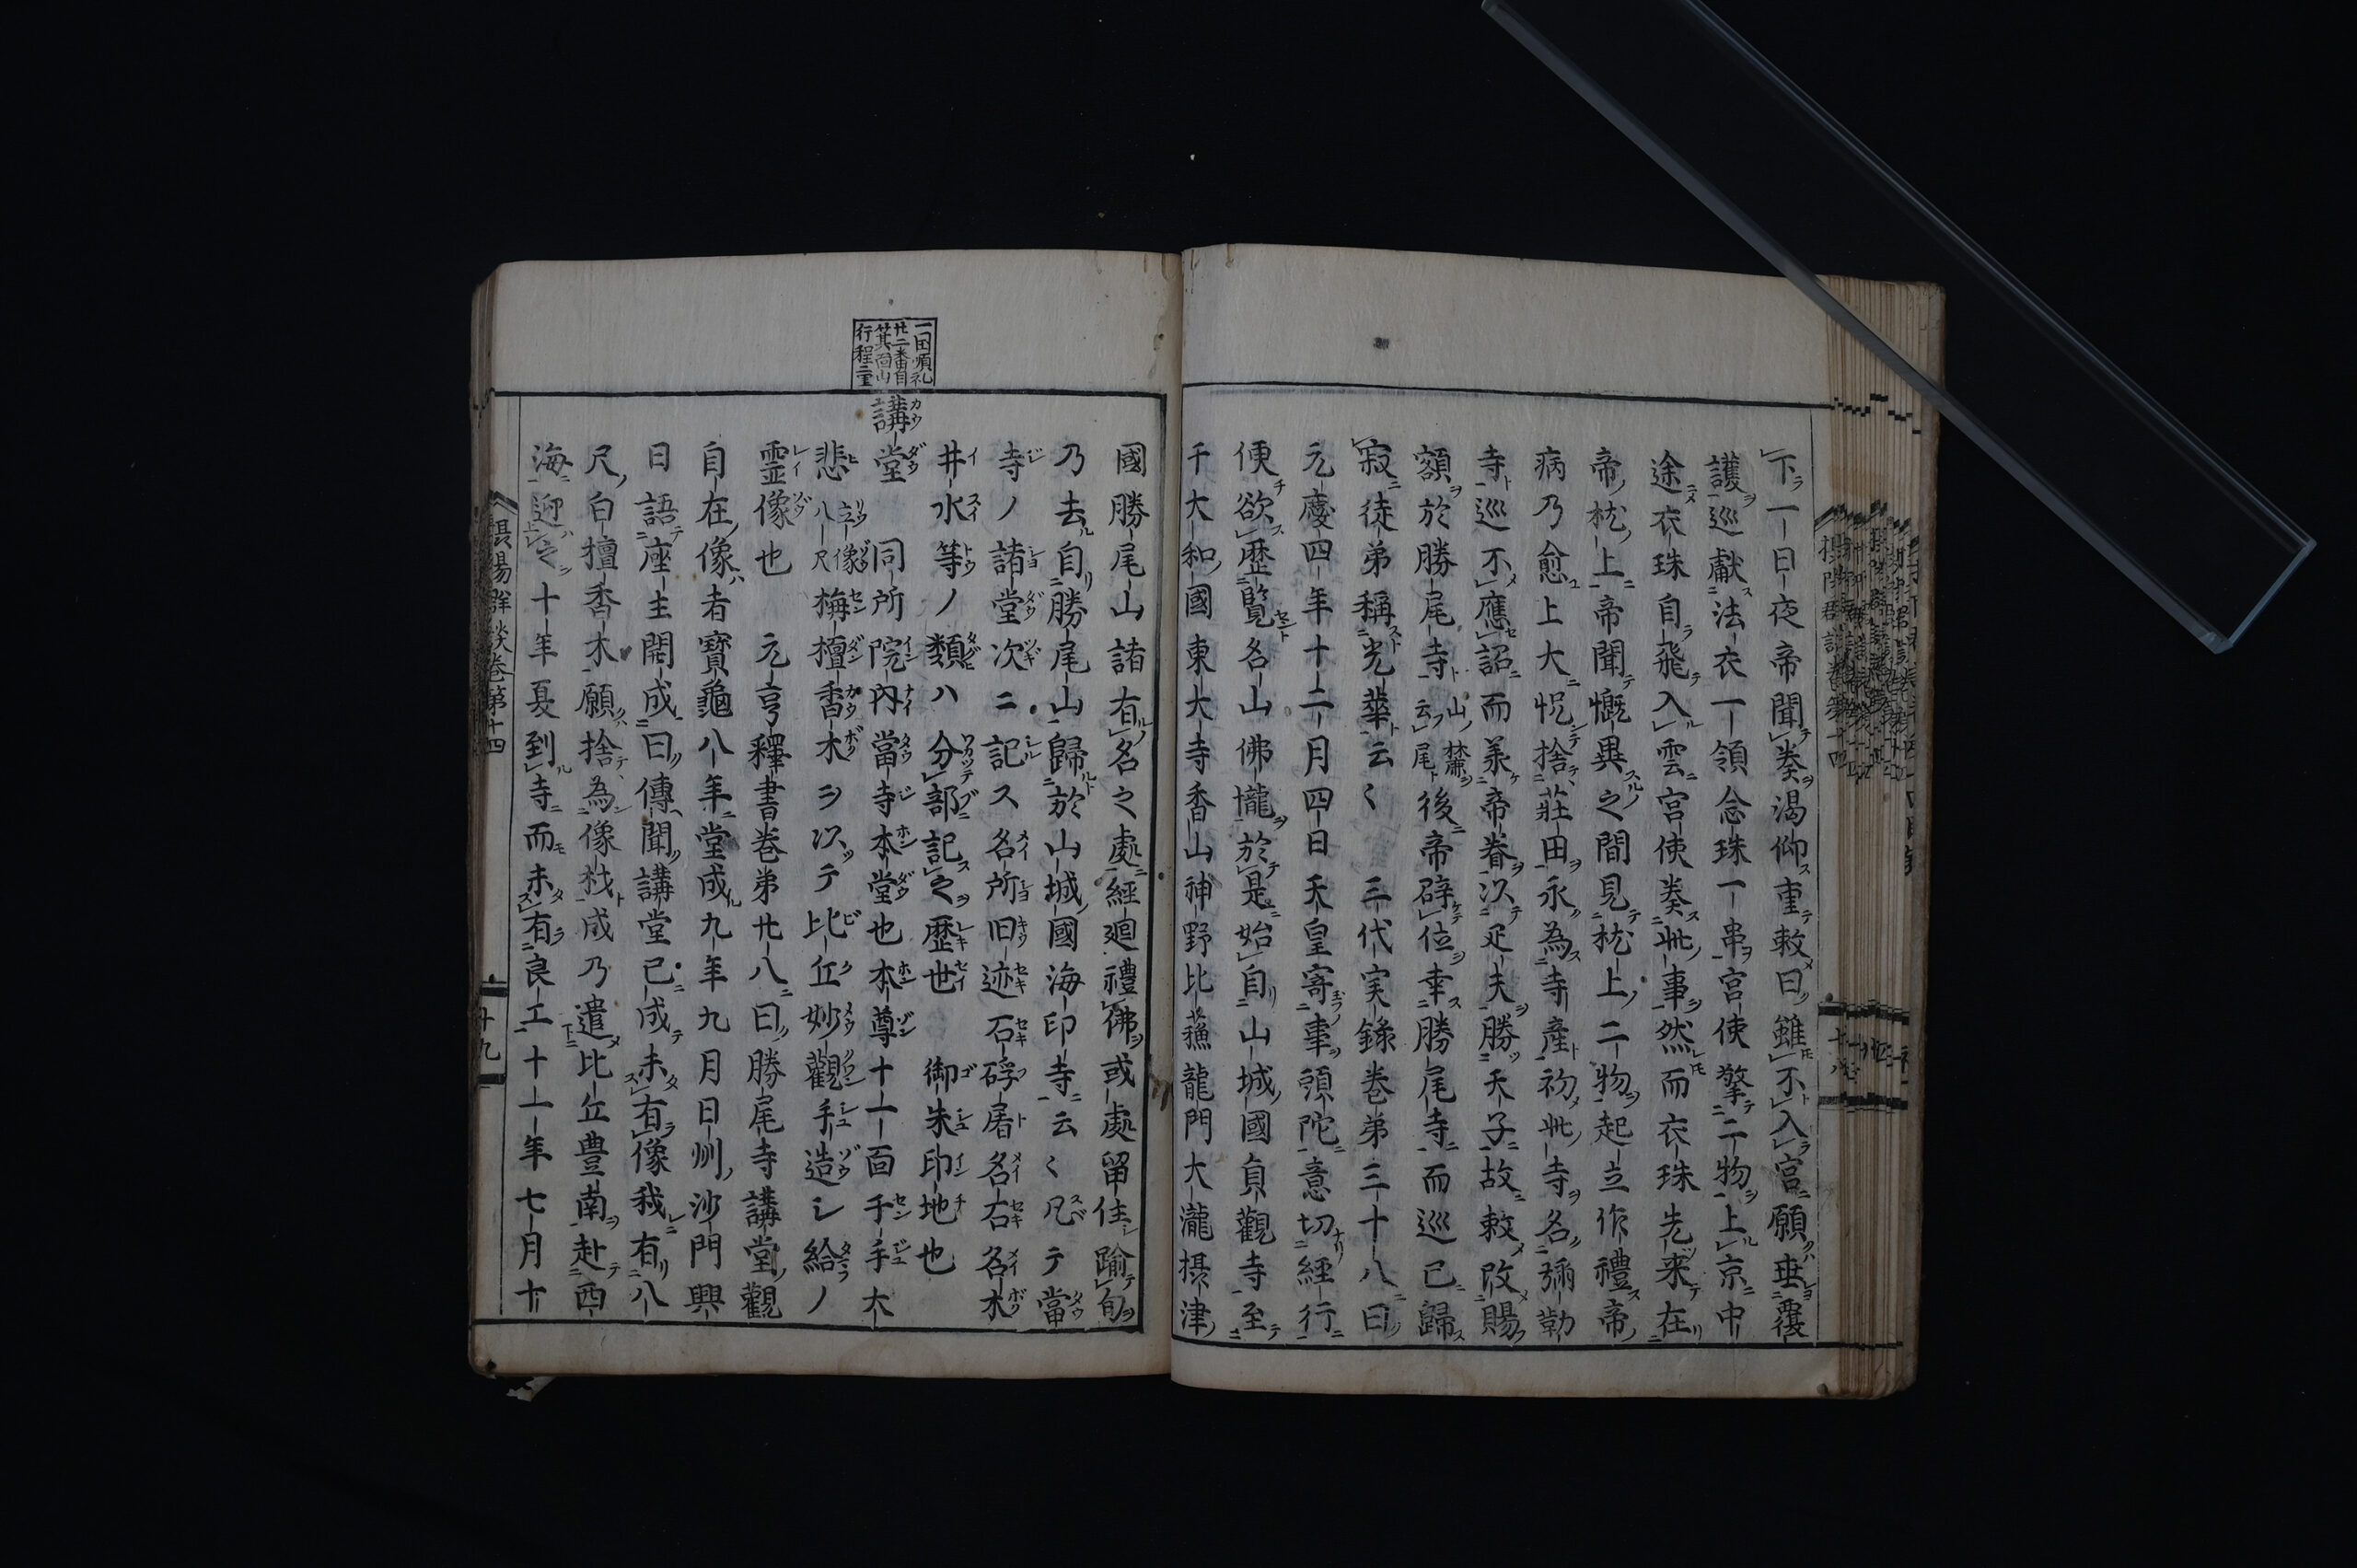 下一日夜帝聞奏渇仰重敕曰雖不入宮願垂覆
護巡獻法衣一領念珠一串宮使擎二物上京中
途衣珠自飛入雲宮使奏此事然而衣珠先来在
帝枕上帝聞慨異之間見枕上二物起立作禮帝
病乃愈上大悦捨莊田永為寺産初此寺名弥勒
寺巡不應詔而美帝眷以疋夫勝天子故敕改賜
額於勝尾寺云山尾禁簾後帝辟位幸勝尾寺而巡已歸
寂徒弟稱光華云〱三代実録巻弟三十八曰
元慶四年十二月四日天皇寄事頭陀意切經行
便欲歴覧名山佛壠於是始自山城國貞觀寺至
千大和國東大寺香山神野比蘓龍門大瀧摂津
國勝尾山諸有名之處經廻禮佛或處留住踰旬
乃去自勝尾山歸於山城國海印寺云〱凡テ當
寺ノ諸堂次ニ記ス名所旧迹石碑屠名石名木
井水等ノ類ハ分部記之歴世御朱印地也
講堂同所院内當寺本堂也本尊十一面千手大
悲立像八尺栴檀香木ヲ以テ比丘妙觀手造シ給ノ
霊像也元亨釋書巻弟廿八曰勝尾寺講堂觀
自在像者寳龜八年堂成九年九月日州沙門興
日語座主開成曰傳聞講堂已成未有像我有八
尺白檀香木願捨為像材成乃遣比丘豊南赴西
海迎之十年夏到寺而未有良工十一年七月十
一国順礼
廿二番目
廿箕面山
行程二里
摂陽群談巻第十四
十九